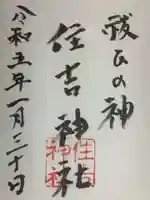 祓ひの神
住吉神社
住吉
神社
令和五年一月二十日